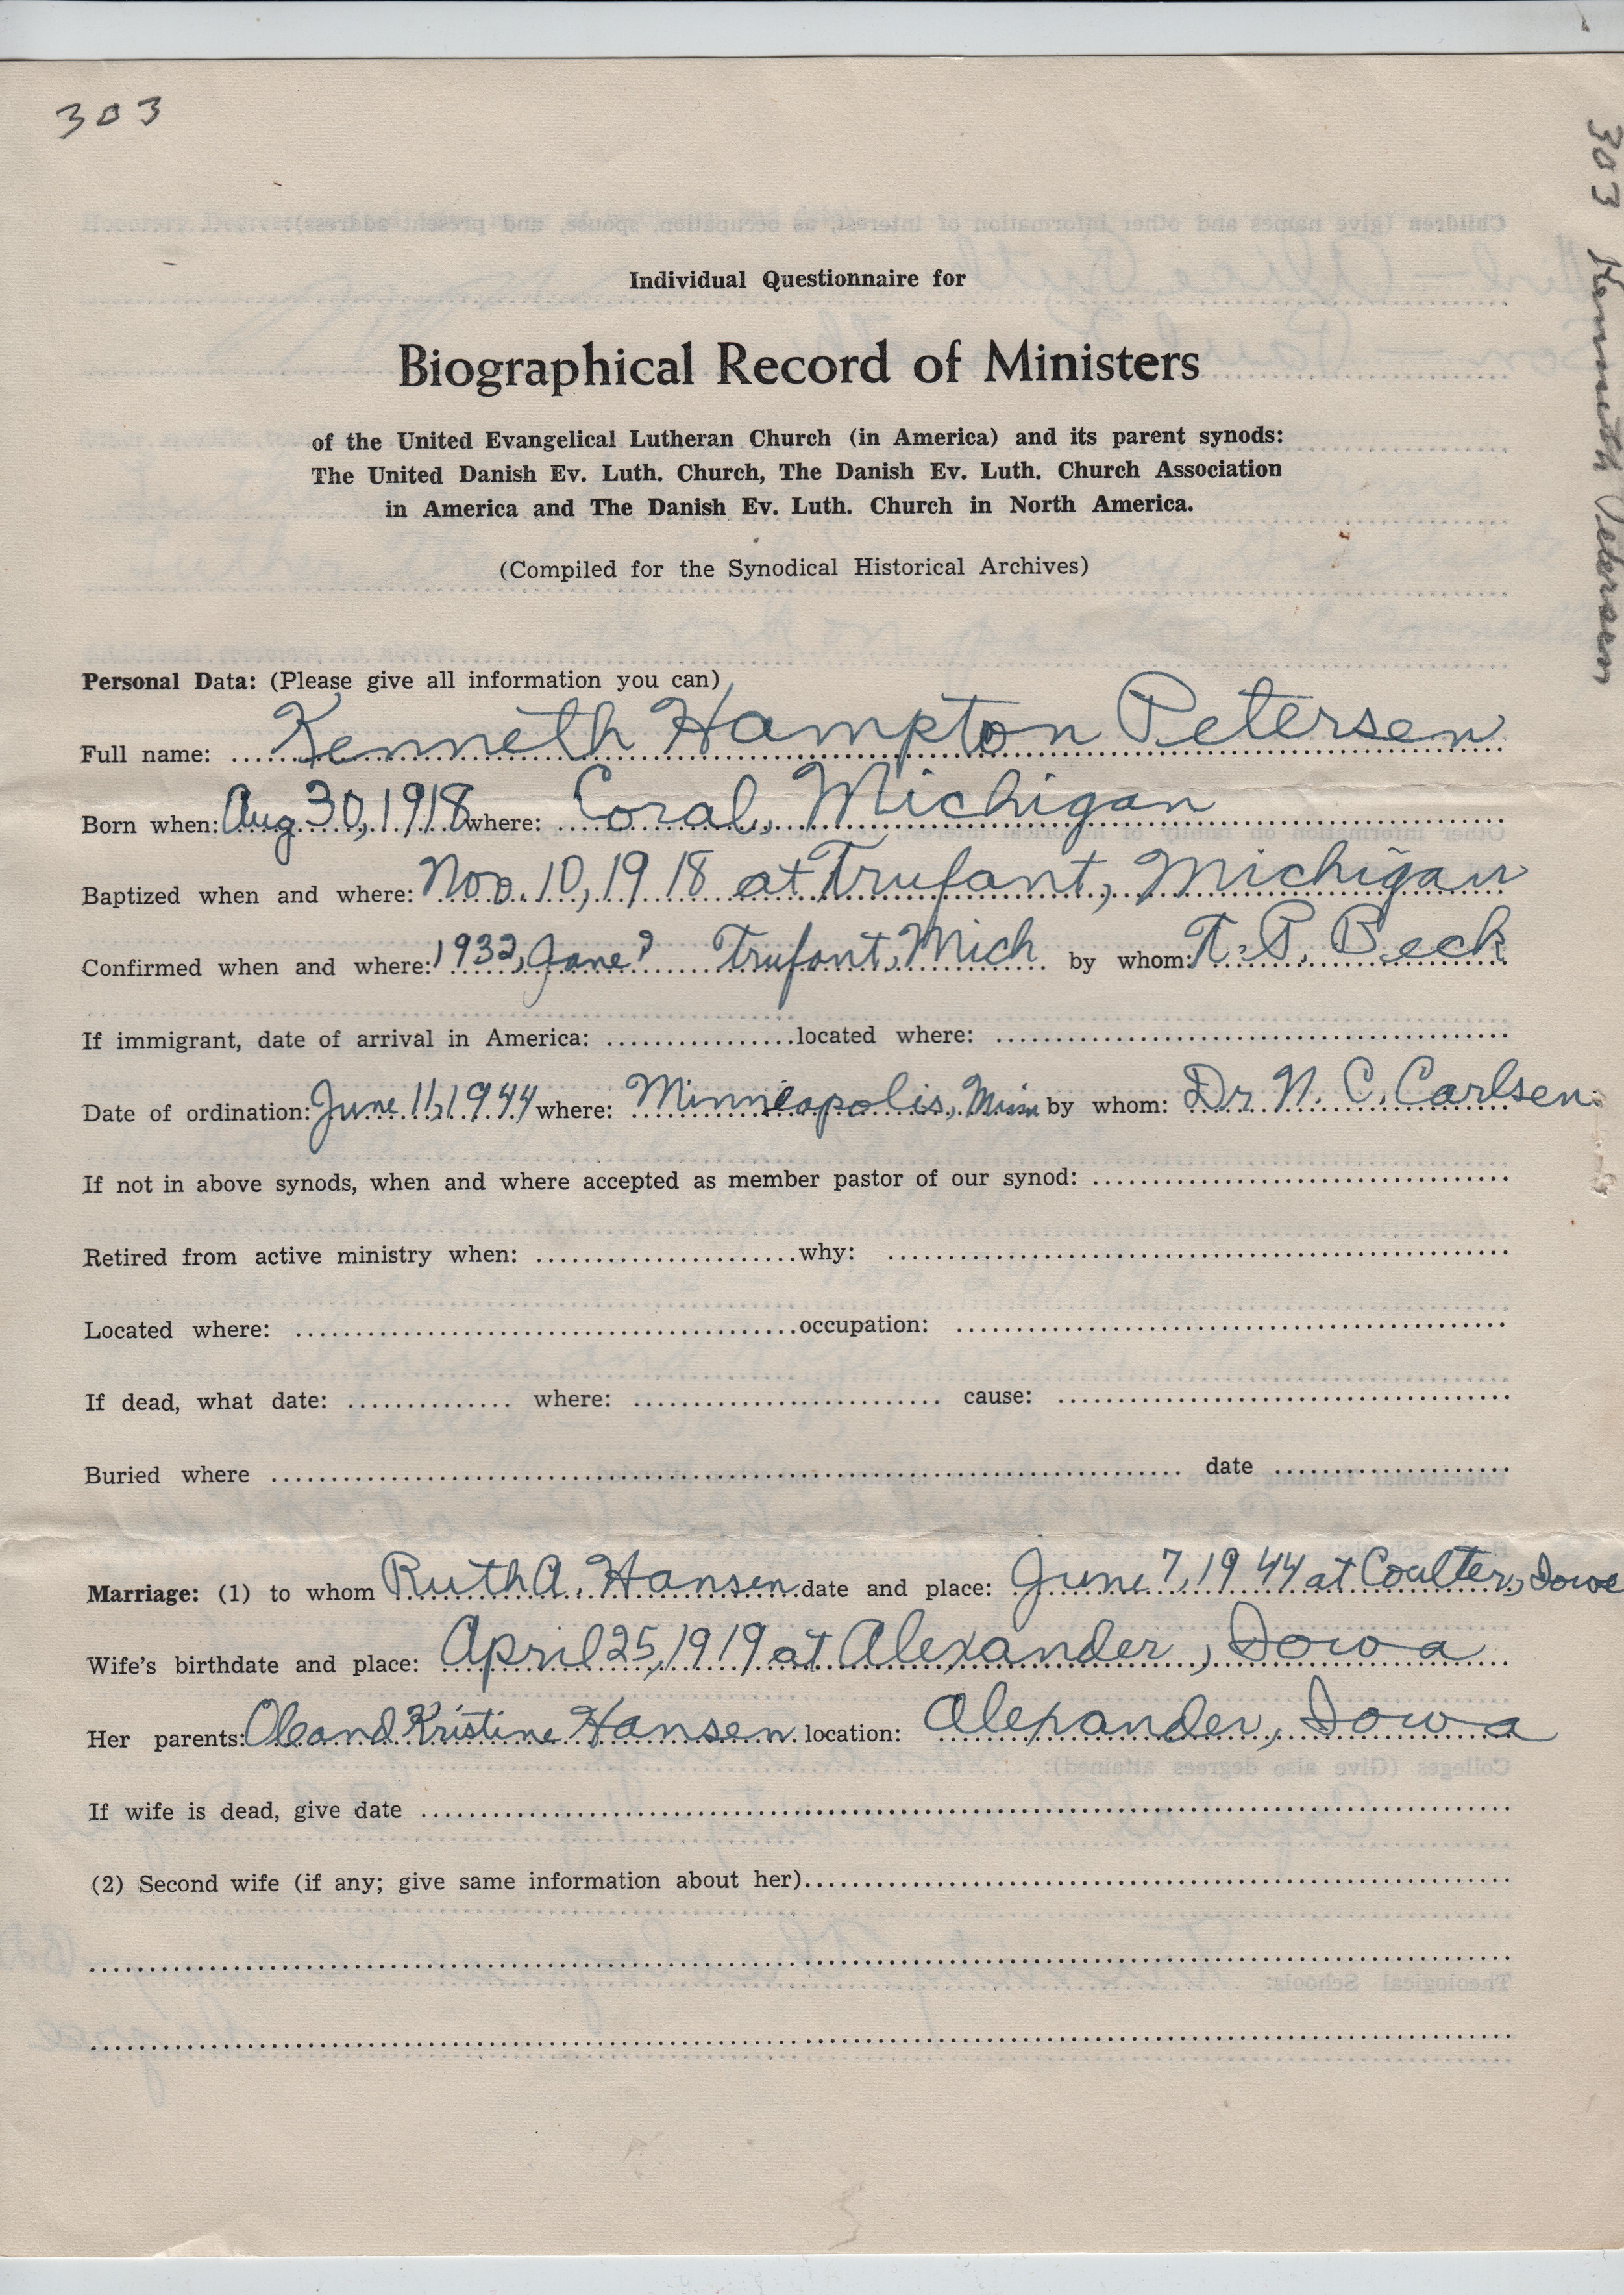 303
303 Kenneth Petersen
Individual Questionnaire for
Biographical Record of Ministers
of the United Evangelical Lutheran Church (in America) and its parent synods:
The United Danish Ev. Luth. Church, The Danish Ev. Luth. Church Association
in America and The Danish Ev. Luth. Church in North America.
(Compiled for the Synodical Historical Archives)
Personal Data: (Please give all information you can)
Full name: Kenneth Hampton Petersen
Born when: Aug 30, 1918 where: Coral, Michigan
Baptized when and where: Nov. 10, 1918 at Trufant, Michigan
Confirmed when and where: 1932, June? Trufant, Mich by whom: R. P. Beck
If immigrant, date of arrival in America: located where:
Date of ordination: June 11, 1944 where: Minneapolis, Minn by whom: Dr N. C. Carlsen
If not in above synods, when and where accepted as member pastor of our synod:
Retired from active ministry when: why:
Located where: occupation:
If dead, what date: where: cause:
Buried where date
Marriage: (1) to whom Ruth A. Hansen date and place: June 7, 1944 at Coulter, Iowa
Wife's birthdate and place: April 25, 1919 at Alexander, Iowa
Her parents: Ole and Kristine Hansen location: Alexander, Iowa
If wife is dead, give date
(2) Second wife (if any; give same information about her)